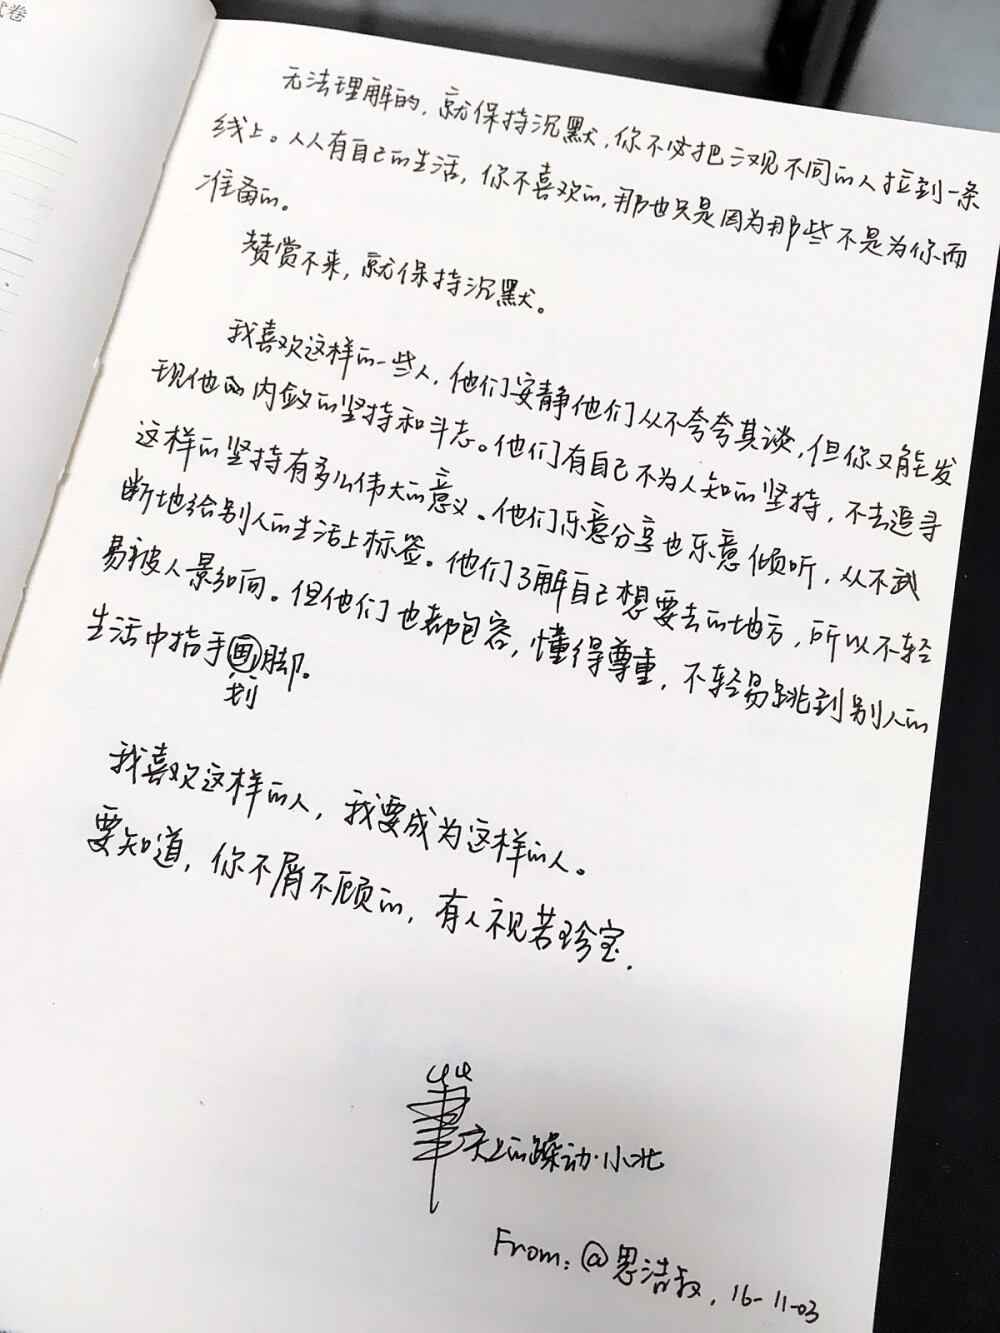 试卷
无法理解的，就保持沉默，你不必把三观不同的人拉到一条
线上。人人有自己的生活，你不喜欢的，那也只是因为那些不是为你而
准备的。
赞赏不来，就保持沉默。
我喜欢这样的一些人，他们安静他们从不夸夸其谈，但你又能发
现他的内敛的坚持和斗志。他们有自己不为人知的坚持，不去追寻
这样的坚持有多么伟大的意义。他们乐意分享也乐意倾听，从不武
断地给别人的生活上标签。他们了解自己想要去的地方，所以不轻
易被人影响。但他们也都包容，懂得尊重，不轻易跳到别人的
生活中指手画脚。
划
我喜欢这样的人，我要成为这样的人。
要知道，你不屑不顾的，有人视若珍宝.
笔尖上的躁动·小北
From：@思洁叔，16-11-03